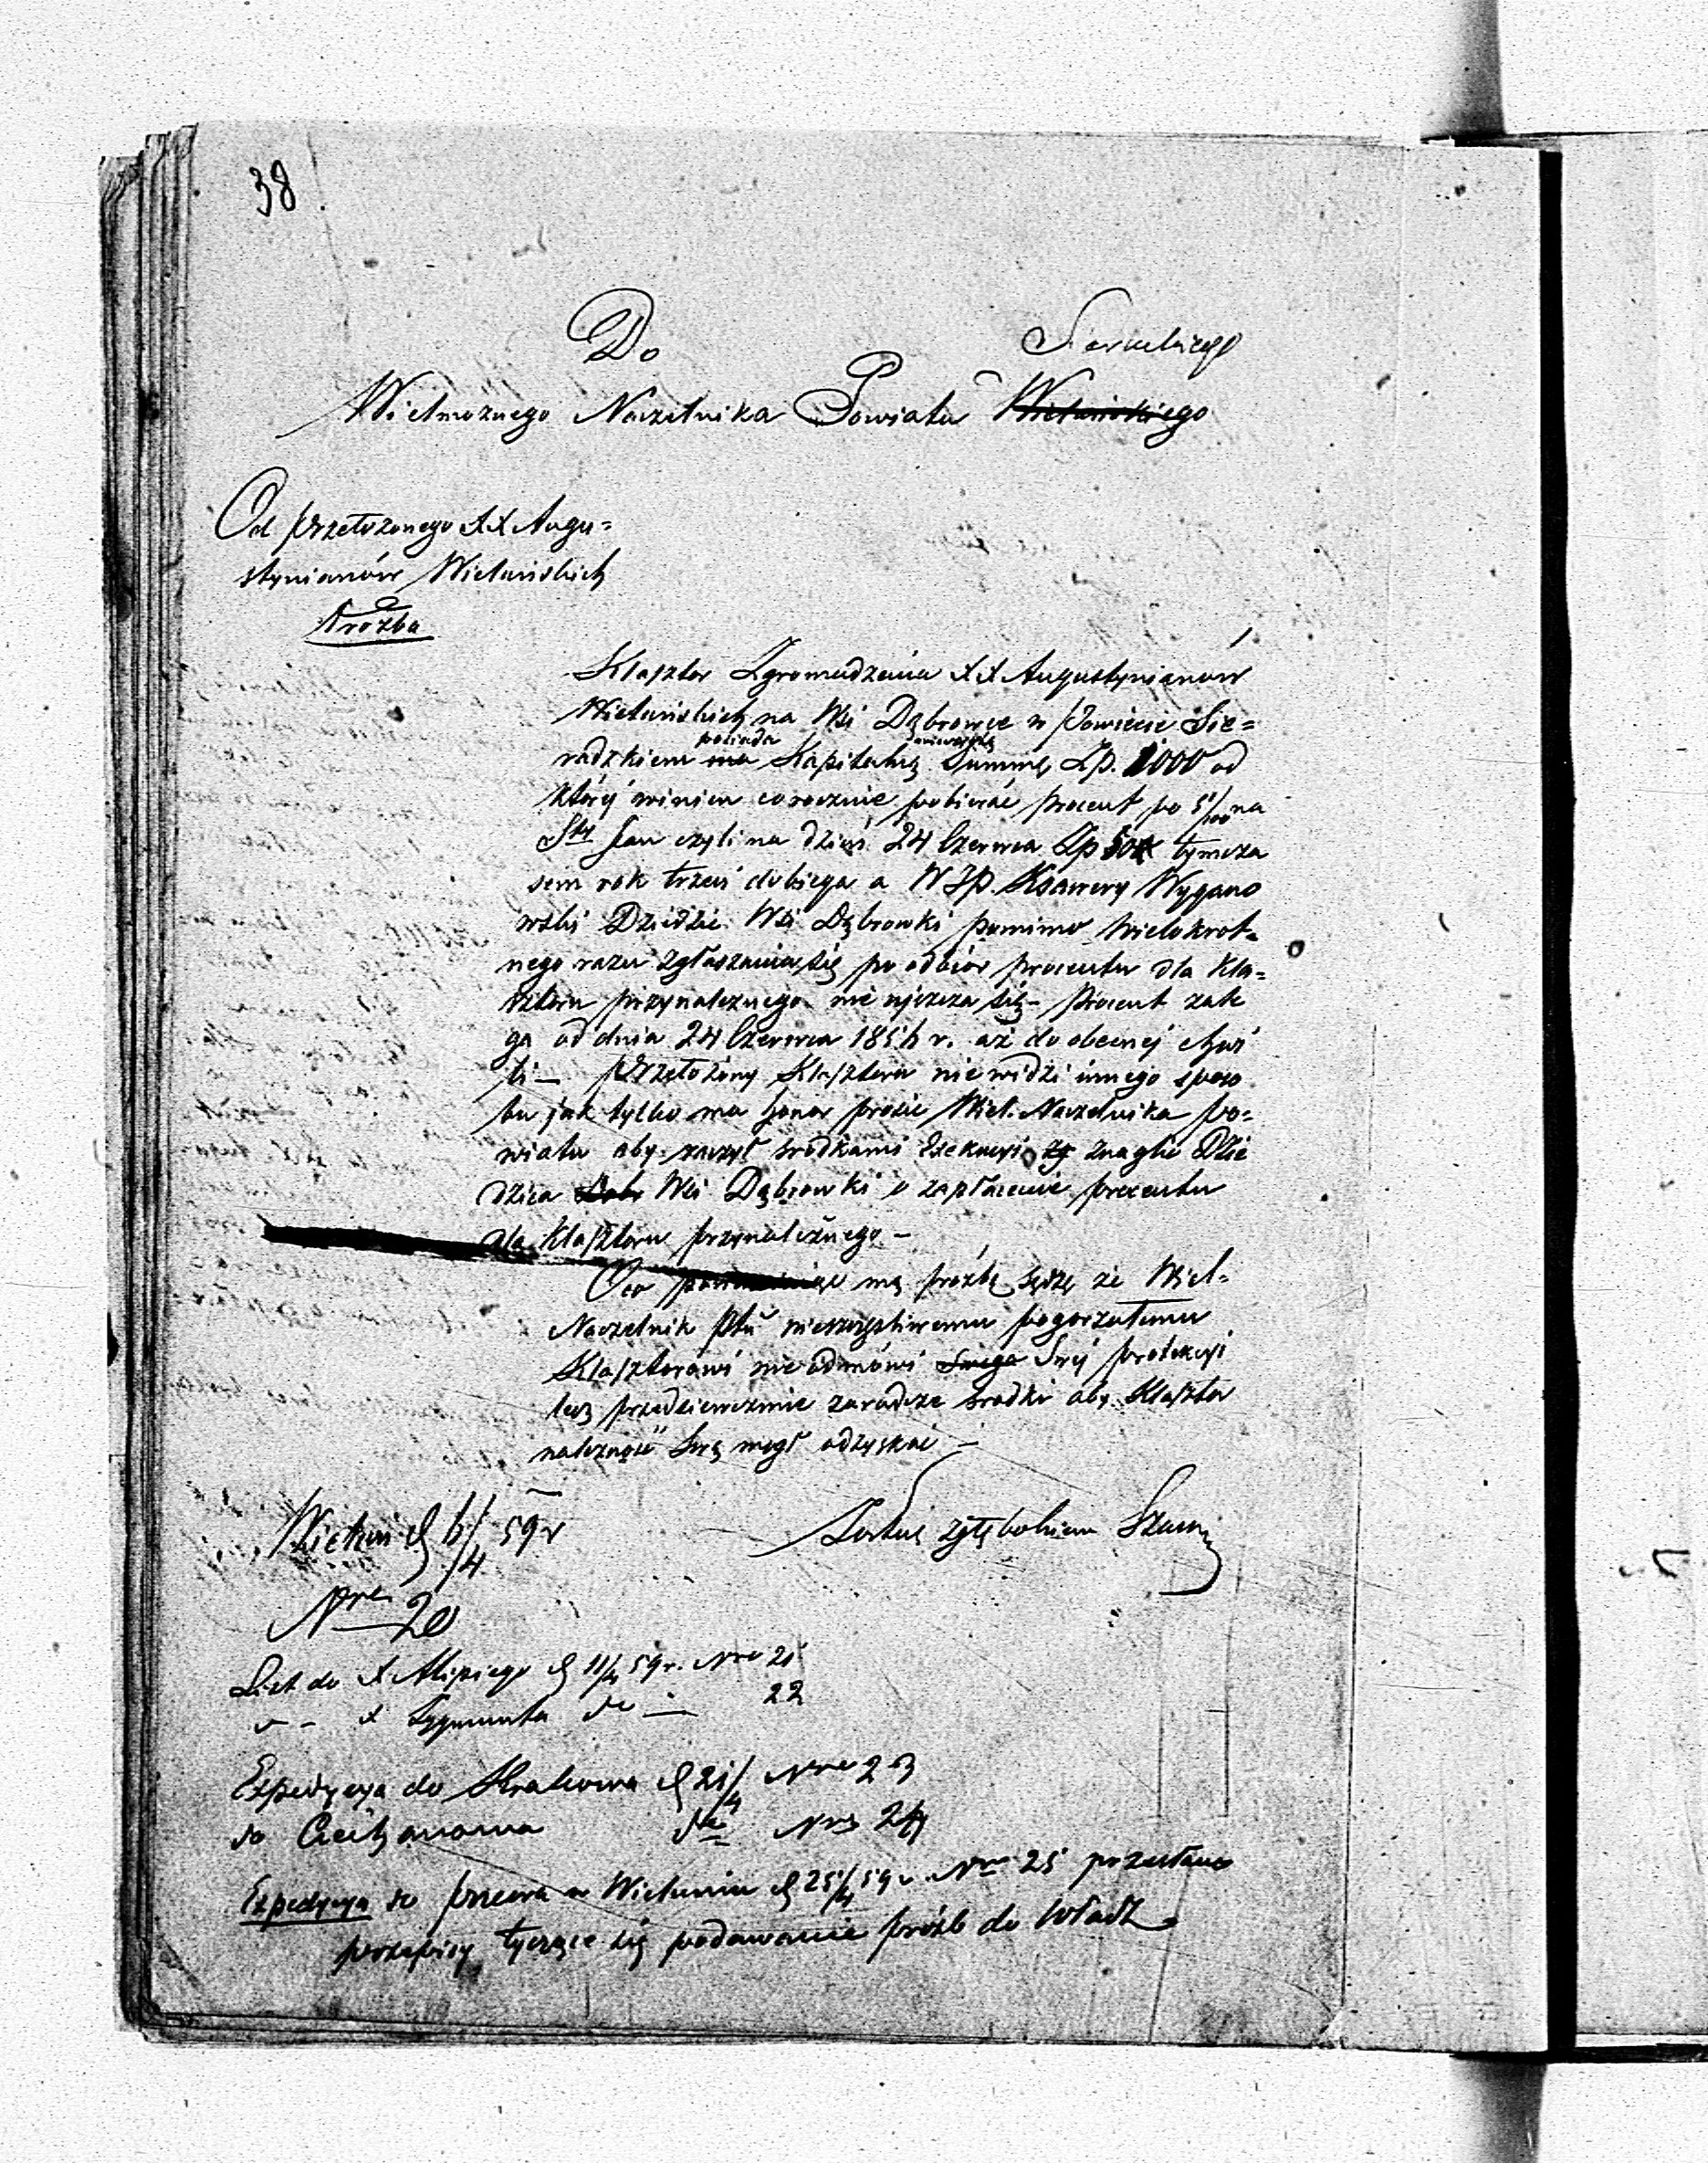 38
Do
Sieradzkiego
Wielmożnego Naczelnika Powiatu Wieluńskiego
Od Przełożonego XX Augu=
stynianów Wieluńskich
Prożba
Klasztor Zgromadzenia XX Augustynianów
Wieluńskich na Wsi Dąbrowce w Powiecie Sie=
posiada
radzkiem ma Kapitalną Summę Zp. 1000 od
której winien corocznie pobierać procent po 5/100 na
Sty Jan czyli na dzień 24 Czerwca Zp 50 tymcza
sem rok trzeci dobiega a WJP. Ksawery Wygano
wski Dziedzic Wsi Dąbrowki pomimo wielokrot=
nego razu zgłaszania się po odbior procentu dla Kla=
sztoru przynależnego nie ujszcza się – Procent zale
ga od dnia 24 Czerwca 1856 r. aż do obecnej chwi
li – Przełożony Klasztoru nie widzi innego sposo
bu jak tylko ma honor prosić Wiel. Naczelnika Po=
wiatu aby raczył srodkami Exekucyi znaglić Dzie
dzica Dobr Wsi Dąbrowki o zapłacenie procentu
dla Klasztoru przynależnego –
Oco mą prożbę sądzę że Wiel=
Naczelnik Ptu nieszczęśliwemu pogorzałemu
Klasztorowi nie odmówi Swego Swéj protekcyi
lecz przedsiewezmie zaradcze srodki aby Klasztor
należność Swą mógł odzyskać –
Wieluń d 6/4 59 r
Nro 20
List do X Alipiego d 11/4 59 r. Nro 21
" – X Zygmunta do – 22
Expedycya do Krakowa d 21/4 Nro 23
do Ciechanowa do Nro 24
Expedycya do w Wieluniu d 25/4 59 r. Nro 25 przesłano
przepisy tyczące się podawanie próźb do Władz